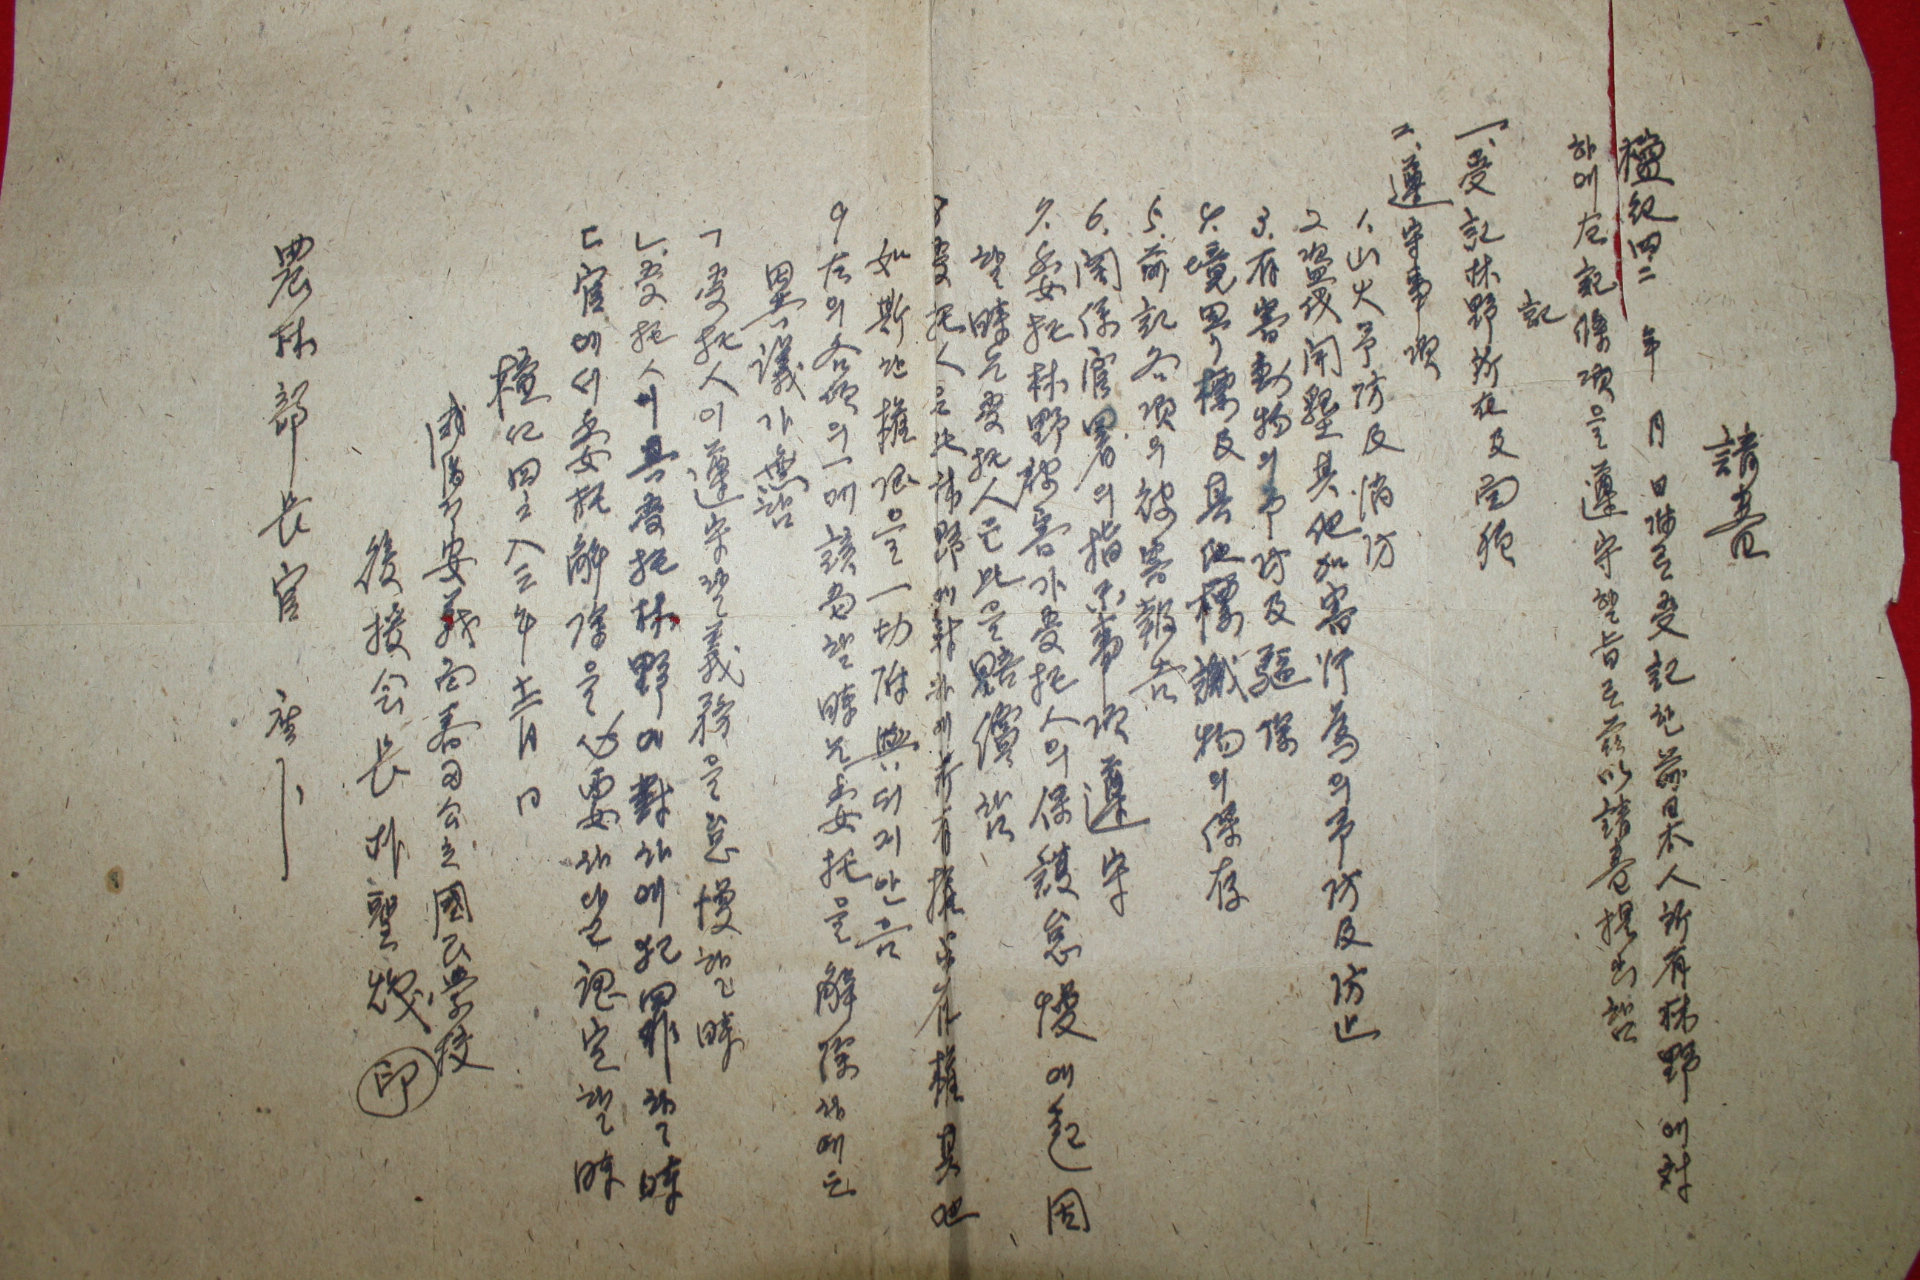 請書
檀紀四二 年 月 日 附로 受託한 前日本人所有林野에 対
하여 左記條項을 遵守할 旨로 茲以請書提出함
記
一、受託林野所在及面積
二、遵守事項
1. 山火予防及消防
2. 盜伐開墾其他加害行為의 予防及防止
3. 有害動物의 予防及驅除
4. 境界標及其他標識物의 保存
5. 前記各項의 被害報告
6. 関係官署의 指示事項遵守
7. 委托林野被害가 受托人의 保護怠慢에 起因
할 時는 受托人은 此을 賠償함
8 受托人은 此林野에 対하여 所有權 占有權 其他
如斯한 權限을 一切附與되지 안음
9 左의 各項의 一에 該当할 時는 委托을 解除하여도
異議가 無함
ㄱ 受托人이 遵守할 義務을 怠慢할 時
ㄴ. 受托人이 其受托林野에 対하여 犯罪할 時
ㄷ 官에서 委托解除을 必要하다고 認定할 時
檀紀四二八三年 十二月 日
安義面 公立國民學校
後援会長 朴聖 印
農林部長官 座下